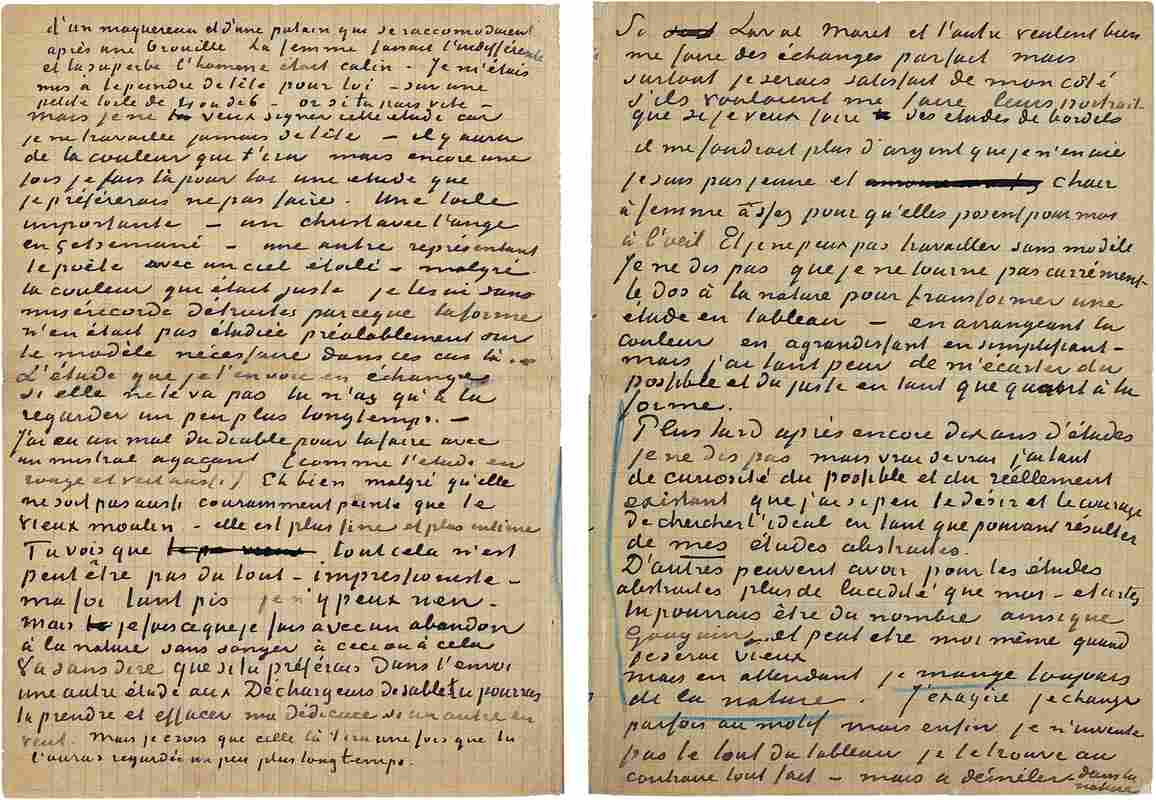 d'un maquereau et d'une putain qui se raccomodaient
après une brouille La femme faisait l'indifférente
et la superbe l'homme était calin. Je m'étais
mis à te peindre de tête pour toi – sur une
petite toile de 4 ou de 6 – or si tu pars vite –
mais je ne veux signer cette étude car
je ne travaille jamais de tête – il y aura
de la couleur qui t'ira mais encore une
fois je fais là pour toi une étude que
je préférerais ne pas faire. Une toile
importante – un christ avec l'ange
en Getsemané – une autre représentant
le poète avec un ciel étoilé – malgré
la couleur qui était juste je les ai sans
miséricorde détruites parceque la forme
n'en était pas étudiée préalablement sur
le modèle nécessaire dans ces cas là.
L'étude que je t'envoie en échange
si elle ne te va pas tu n'as qu'à la
regarder un peu plus longtemps. –
J'ai eu un mal du diable pour la faire avec
un mistral agaçant (comme l'étude en
rouge et vert aussi) Eh bien malgré qu'elle
ne soit pas aussi couramment peinte que le
vieux moulin – elle est plus fine et plus intime
Tu vois que tout cela n'est
peut être pas du tout – impressioniste –
ma foi tant pis je n'y peux rien –
mais je fais ce que je fais avec un abandon
à la nature sans songer à ceci ou à cela
Va sans dire que si tu préférais dans l'envoi
une autre étude aux Déchargeurs de sable tu pourras
la prendre et effacer ma dédicace si un autre en
veut. Mais je crois que celle là t'ira une fois que tu
l'auras regardée un peu plus longtemps.
Si Laval Moret et l'autre veulent bien
me faire des échanges parfait mais
surtout je serais satisfait de mon côté
s'ils voulaient me faire leurs portraits
que si je veux faire des études de bordels
il me faudrait plus d'argent que je n'en aie
je suis pas jeune et chair
à femme assez pour qu'elles posent pour moi
à l'oeil Et je ne peux pas travailler sans modèle
Je ne dis pas que je ne tourne pas carrément
le dos à la nature pour transformer une
étude en tableau – en arrangeant la
couleur en agrandissant en simplifiant –
mais j'ai tant peur de m'écarter du
possible et du juste en tant que quant à la
forme.
Plus tard après encore dix ans d'études
je ne dis pas mais vrai de vrai j'ai tant
de curiosité du possible et du réellement
existant que j'ai si peu le désir et le courage
de chercher l'idéal en tant que pouvant résulter
de mes études abstraites.
D'autres peuvent avoir pour les études
abstraites plus de lucidité que moi – et certes
tu pourrais être du nombre ainsi que
Gauguin et peut etre moi même quand
je serai vieux
mais en attendant je mange toujours
de la nature. J'exagère je change
parfois au motif mais enfin je n'invente
pas le tout du tableau je le trouve au
contraire tout fait – mais à démêler dans la
nature